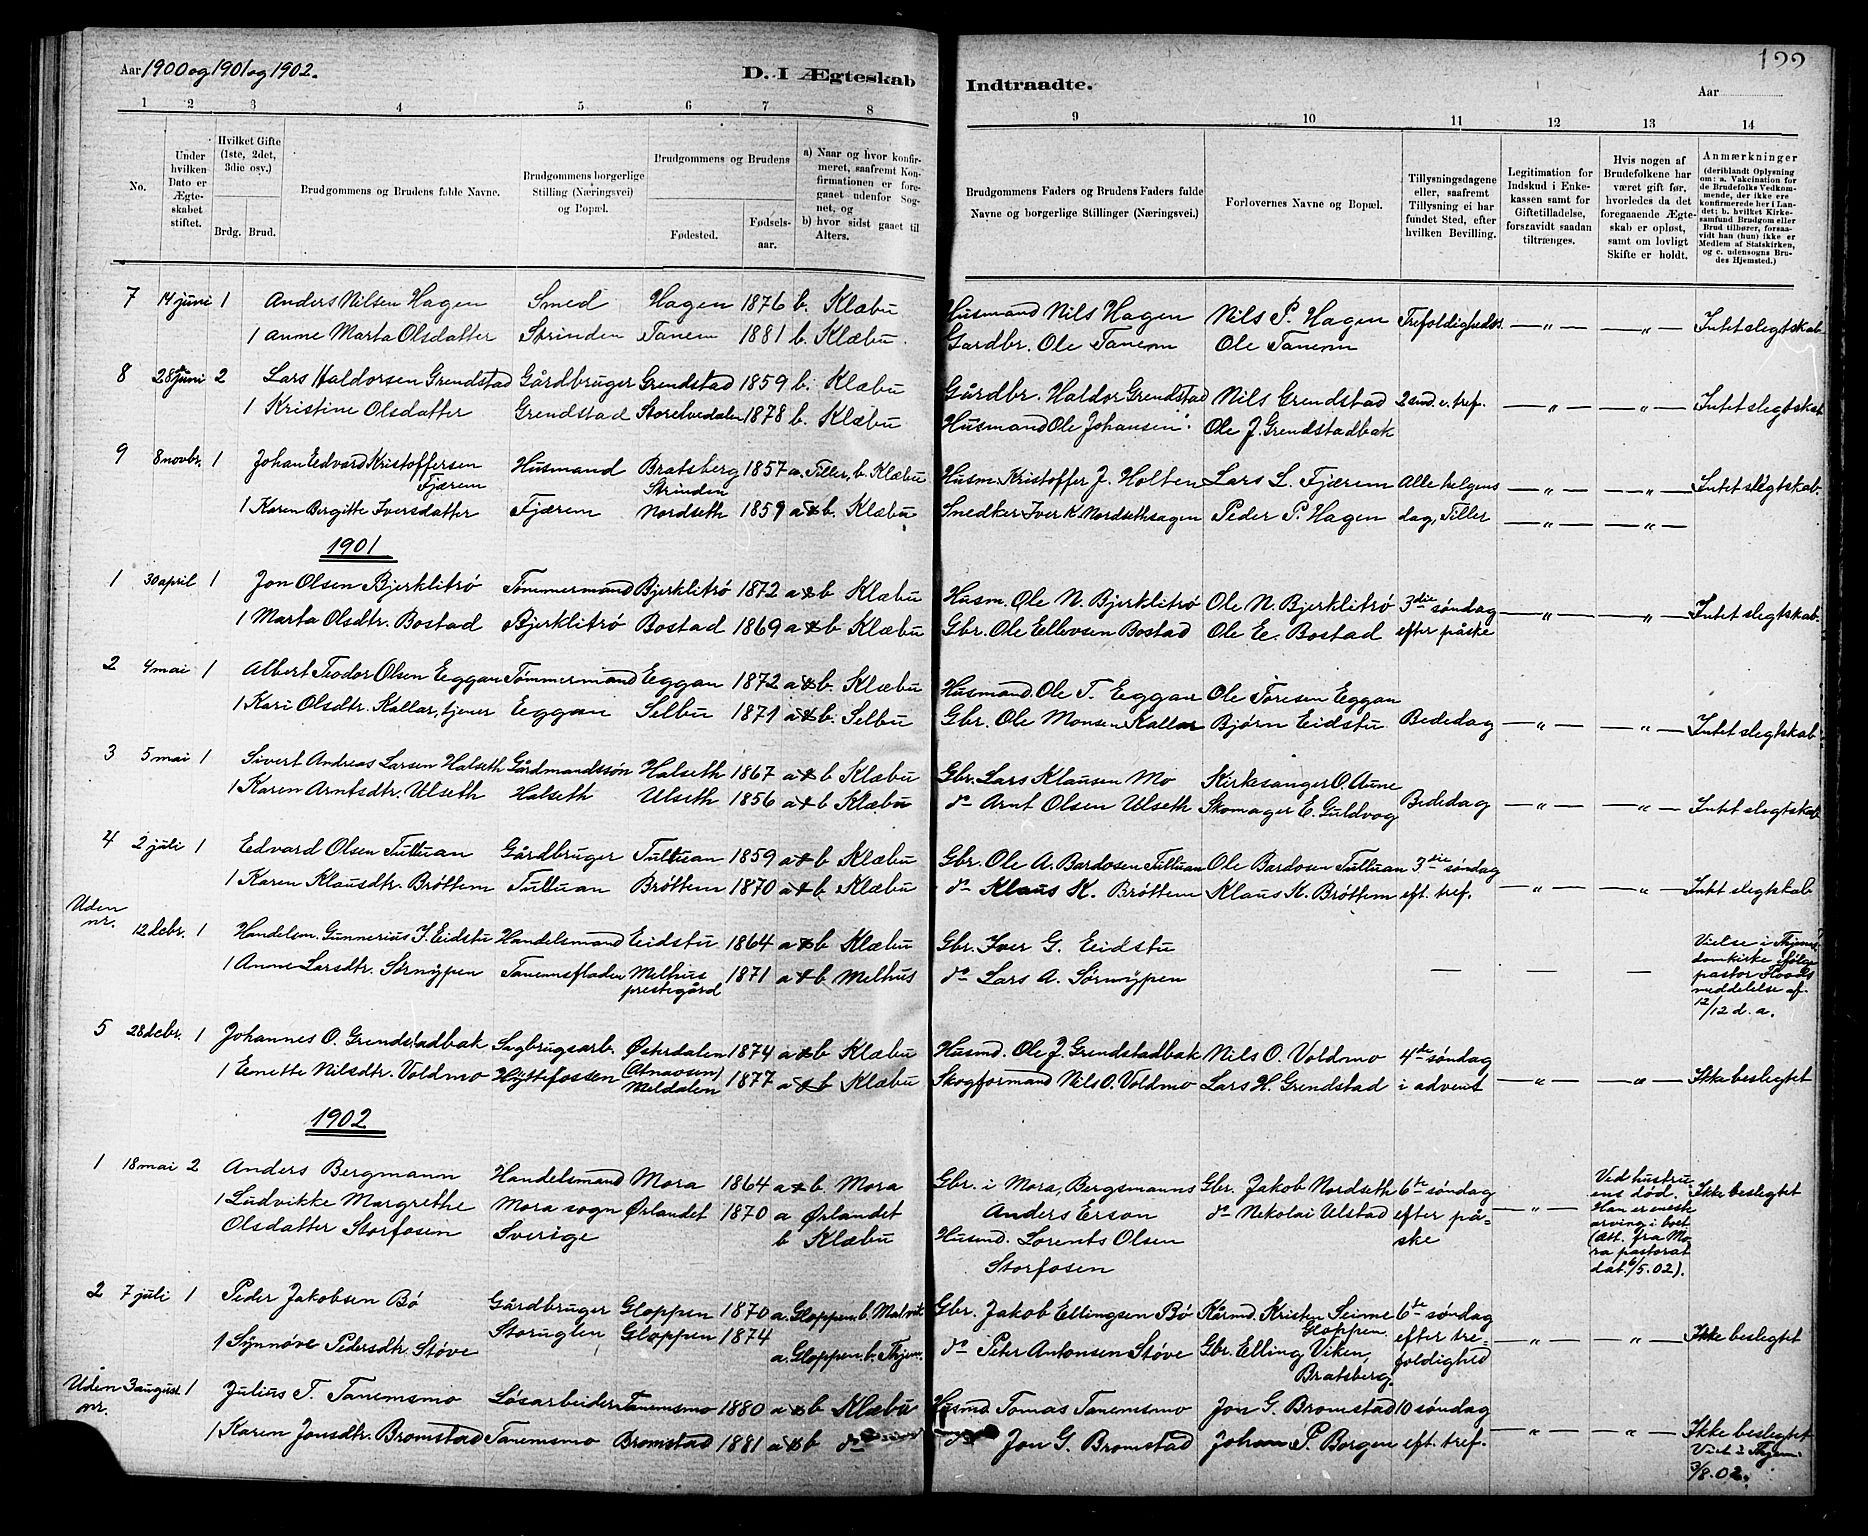 Aar 1900 og 1901 og 1902.
D. I Ægteskab Indtraadte.
Aar
122
1 2 3 4 5 6 7 8 9 10 11 12 13 14
No.
Under hvilken Dato er Ægteskabet stiftet.
Hvilket Gifte (1ste, 2det, 3die osv.)
Brdg. Brud.
Brudgommens og Brudens fulde Navne.
Brudgommens borgerlige Stilling (Næringsvei) og Bopæl.
Brudgommens og Brudens
Fødested.
Fødselsaar.
a) Naar og hvor konfirmeret, saafremt Konfirmationen er foregaaet udenfor Sognet, og
b) hvor sidst gaaet til Alters.
Brudgommens Faders og Brudens Faders fulde Navne og borgerlige Stillinger (Næringsvei.)
Forlovernes Navne og Bopæl.
Tillysningsdagene eller, saafremt Tillysning ei har fundet Sted, efter hvilken Bevilling.
Legitimation for Indskud i Enkekassen samt for Giftetilladelse, forsaavidt saadan tiltrænges.
Hvis nogen af Brudefolkene har været gift før, hvorledes da det foregaaende Ægteskab er opløst, samt om lovligt Skifte er holdt.
Anmærkninger (deriblandt Oplysning om: a. Vakcination for de Brudefolks Vedkommende, der ikke ere konfirmerede her i Landet; b. hvilket Kirkesamfund Brudgom eller Brud tilhører, forsaavidt han (hun) ikke er Medlem af Statskirken, og c. udensogns Brudes Hjemsted.)
7 14 juni 1 Anders Nilsen Hagen Smed Hagen 1876 b. Klæbu Husmand Nils Hagen Nils P. Hagen Trefoldigheds. — " — — " — Intet slegtskab
1 Anne Marta Olsdatter Strinden Tanem 1881 b. Klæbu. Gardbr. Ole Tanem Ole Tanem
8 28 juni 2 Lars Haldorsen Grendstad Gårdbruger Grendstad 1859 b. Klæbu Gårdbr. Haldor Grendstad Nils Grendstad 2 snd. e. tref. — " — — " — Intet slegtskab
1 Kristine Olsdatter Grendstad Storelvedalen 1878 b. Klæbu Husmand Ole Johansen Ole J. Grendstadbak
9 8 novbr. 1 Johan Edvard Kristoffersen Fjærem Husmand Bratsberg Strinden 1857 a. Tiller, b. Klæbu Husm. Kristoffer J. Holten Lars L. Fjærem Alle helgens — " — — " — Intet slegtskab
1 Karen Bergitte Iversdatter Fjærem Nordseth 1859 a & b. Klæbu Snedker Iver K. Nordsethsagen Peder P. Hagen dag, Tiller — " — — " —
1901
1 30 april 1 Jon Olsen Bjerklitrø Tømmermand Bjerklitrø 1872 a & b Klæbu Husm. Ole N. Bjerklitrø Ole N. Bjerklitrø 3die søndag — " — — " — Intet slegtskab
1 Marta Olsdtr. Bostad Bjerklitrø Bostad 1869 a & b Klæbu Gbr. Ole Ellevsen Bostad Ole E. Bostad efter påske
2 4 mai 1 Albert Teodor Olsen Eggan Tømmermand Eggan 1872 a & b. Klæbu Husmand. Ole T. Eggan Ole Toresen Eggan
1 Kari Olsdtr. Kallar, tjener Eggan Selbu 1871 a & b. Selbu Gbr. Ole Monsen Kallar Bjørn Eidstu Bededag — " — — " — Intet slegtskab
3 5 mai 1 Sivert Andreas Larsen Halseth Gårdmandssøn Halseth 1867 a & b Klæbu Gbr. Lars Klausen Mo Kirkesanger O. Aune
1 Karen Arntsdtr. Ulseth Halseth Ulseth 1856 a & b Klæbu do Arnt Olsen Ulseth Skomager E. Guldvog Bededag — " — — " — Intet slegtskab
4 2 juli 1 Edvard Olsen Tulluan Gårdbruger Tulluan 1859 a & b Klæbu Gbr. Ole A. Bardosen Tulluan Ole Bardosen Tulluan 3die søndag
1 Karen Klausdtr. Brøttem Tulluan Brøttem 1870 a & b Klæbu do Klaus K. Brøttem Klaus K. Brøttem eft. tref. — " — — " — Intet slegtskab
Uden nr. 12 debr. 1 Handelsm. Gunnerius I. Eidstu Handelsmand Eidstu 1864 a & b Klæbu Gbr. Iver G. Eidstu
1 Anne Larsdtr. Sørnypen Tanemsfladen Melhus prestegård 1871 a & b Melhus do Lars A. Sørnypen — — — Vielse i Thjems domkirke ifølge pastor meddelelse af 12/12 d. a.
5 28 debr. 1 Johannes O. Grendstadbak Sagbrugsarb. Østerdalen (Atnaosen) 1874 a & b Klæbu Husmd. Ole J. Grendstadbak Nils O. Voldmo 4de søndag
1 Enette Nilsdtr. Voldmo Hyttefossen Meldalen 1877 a & b Klæbu Skogformand Nils O. Voldmo Lars H. Grendstad i advent — " — — " — Ikke beslegtet
1902
1 18 mai 2 Anders Bergmann Handelsmand Mora 1864 a & b. Mora Gbr. i Mora, Bergsmanns Gbr. Jakob Nordseth 6te søndag Ved hustruens død. Ikke beslegtet
1 Ludvikke Margrethe Mora sogn Ørlandet 1870 a Ørlandet Anders Erson do Nikolai Ulstad efter på- — " — Han er eneste arving i boet
Olsdatter Storfosen Sverige b Klæbu Husmd. Lorents Olsen ske (Att. fra Mora pastorat
Storfosen dat. 6/5.02).
2 7 juli 1 Peder Jakobsen Bø Gårdbruger Gloppen 1870 a. Gloppen. b. Malvik Gbr. Jakob Ellingsen Bø Kårmd. Kristen Seime Gloppen 6te søndag
1 Synnøve Pedersdtr. Støve Storuglen Gloppen 1874 a. Gloppen. b. Thjem. do Peter Antonsen Støve Gbr. Elling Viken, Bratsberg. efter trefoldighed — " — — " — Ikke beslegtet
Uden nr. 3 august 1 Julius T. Tanemsmo Løsarbeider Tanemsmo 1880 a & b Klæbu Husmd Tomas Tanemsmo Jon G. Bromstad 10 søndag
1 Karen Jonsdtr. Bromstad Tanemsmo Bromstad 1881 a & b do do Jon G. Bromstad Johan P. Borgen eft. tref. — " — — " — Ikke beslegtet Viet i Thjem. 3/8.02.